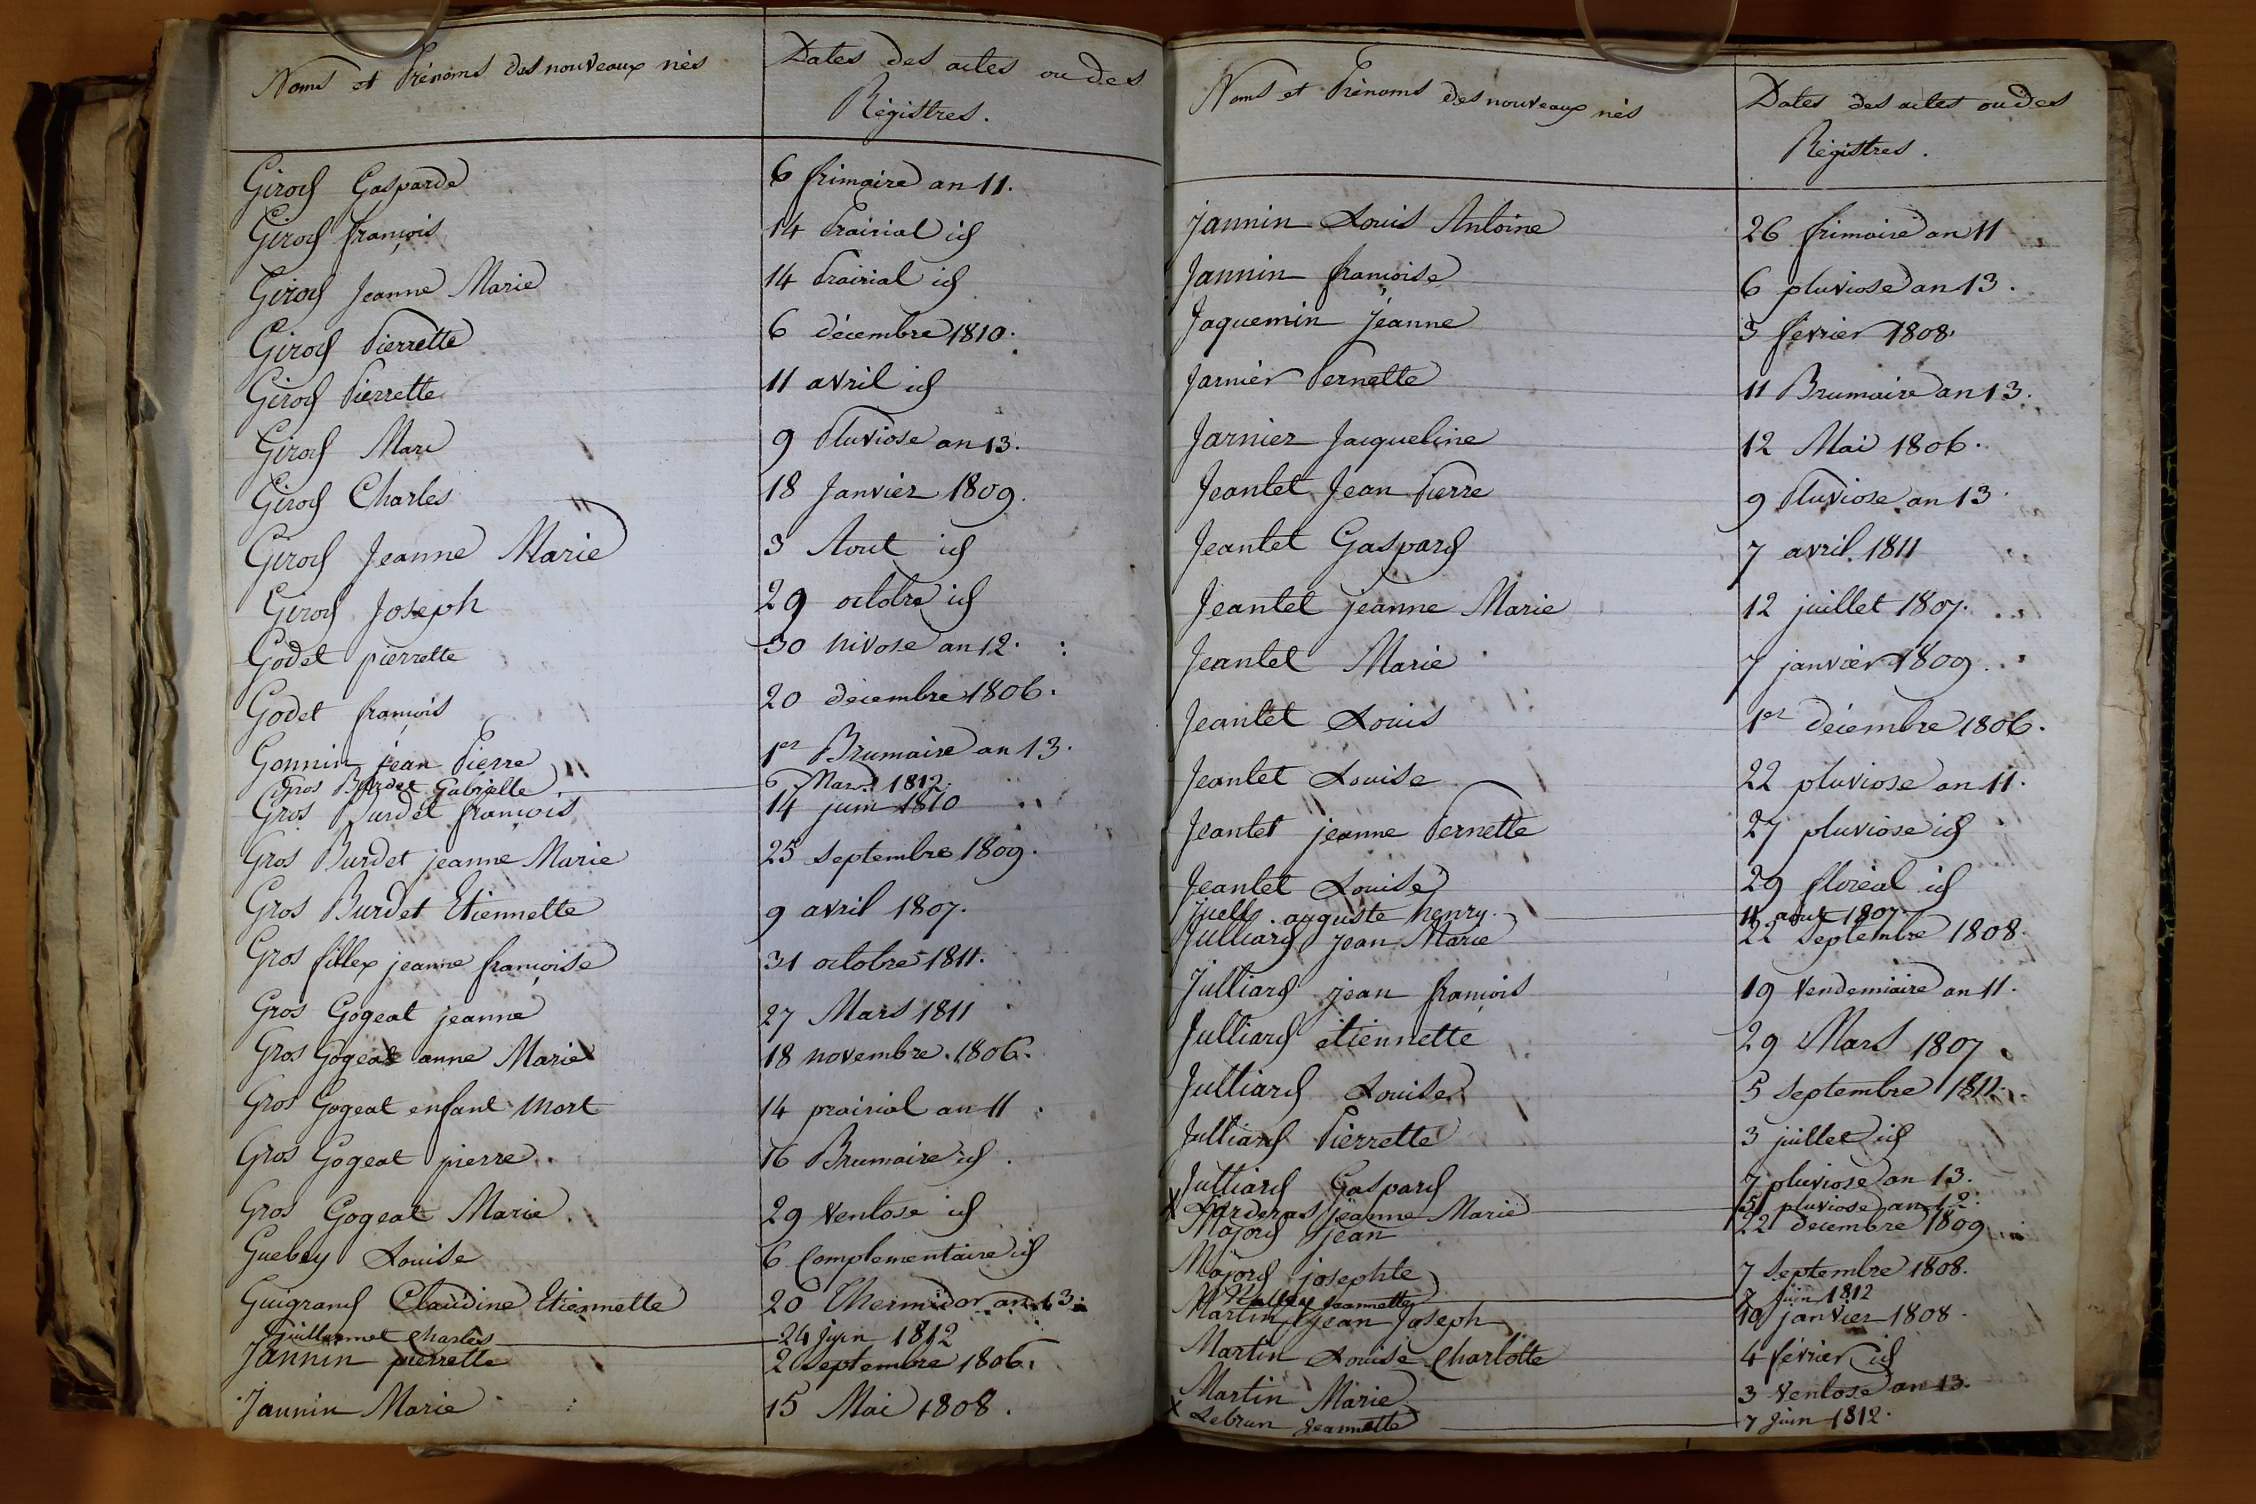 Noms et Prénoms des nouveaux nés Dates des actes ou des
Régistres.
Girod Gasparde 6 frimaire an 11.
Girod françois 14 Prairial id
Girod Jeanne Marie 14 Prairial id
Girod Pierrette 6 décembre 1810.
Girod Pierrette 11 avril id
Girod Marc 9 Pluviose an 13.
Girod Charles 18 Janvier 1809.
Girod Jeanne Marie 3 Aout id
Girod Joseph 29 octobre id
Godet pierrette 30 Nivose an 12.
Godet françois 20 décembre 1806.
Gonnin jean Pierre 1er Brumaire an 13.
Gros Burdet Gabrielle 6 Mars 1812.
Gros Burdet françois 14 juin 1810
Gros Burdet jeanne Marie 25 septembre 1809.
Gros Burdet Etiennette 9 avril 1807.
Gros fillex jeanne françoise 31 octobre 1811.
Gros Gogeat jeanne 27 Mars 1811
Gros Gogeat anne Marie 18 novembre 1806.
Gros Gogeat enfant Mort 14 prairial an 11
Gros Gogeat pierre 16 Brumaire id.
Gros Gogeat Marie 29 Ventose id
Guebey Louise 6 Complementaire id
Guigrand Claudine Etiennette 20 Thermidor an 13.
Guillermet Charles 24 juin 1812
Jannin pierrette 2 septembre 1806.
Jannin Marie 15 Mai 1808.
Noms et Prénoms des nouveaux nés Dates des actes ou des
Régistres.
Jannin Louis Antoine 26 frimaire an 11
Jannin françoise 6 pluviose an 13.
Jaquemin Jeanne 3 février 1808.
Jarnier Pernette 11 Brumaire an 13.
Jarnier Jacqueline 12 Mai 1806.
Jeantet Jean Pierre 9 Pluviose an 13.
Jeantet Gaspard 7 avril 1811
Jeantet jeanne Marie 12 juillet 1807.
Jeantet Marie 7 janvier 1809.
Jeantet Louis 1er décembre 1806.
Jeantet Louise 22 pluviose an 11.
Jeantet jeanne Pernette 27 pluviose id
Jeantet Louise 29 floréal id
Juell auguste henry. 11 aout 1807
Julliard jean Marie 22 septembre 1808.
Julliard jean françois 19 Vendemiaire an 11.
Julliard étiennette 29 Mars 1807
Julliard Louise 5 septembre 1811.
Julliard Pierrette 3 juillet id
Julliard Gaspard 7 pluviose an 13.
x jeanne Marie 5 pluviose an 12.
Majord jean 22 decembre 1809
Majord josephte 7 septembre 1808.
Jeannette 7 juin 1812
Martin jean Joseph 10 janvier 1808.
Martin Louise Charlotte 4 février id
Martin Marie 3 Ventose an 13.
x Lebrun Jeannette 7 juin 1812.